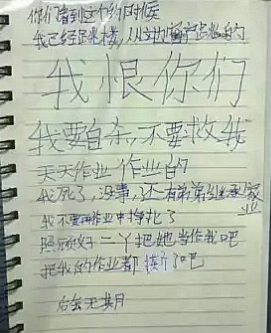 你们看到这个的时候
我已经跳楼,从对
我恨你们
我要自杀,不要救我
天天作业作业的
我死了,没事,还有弟弟
我不要再作业中挣扎了
照顾好二丫把她当作我吧
把我的作业都
后会无期